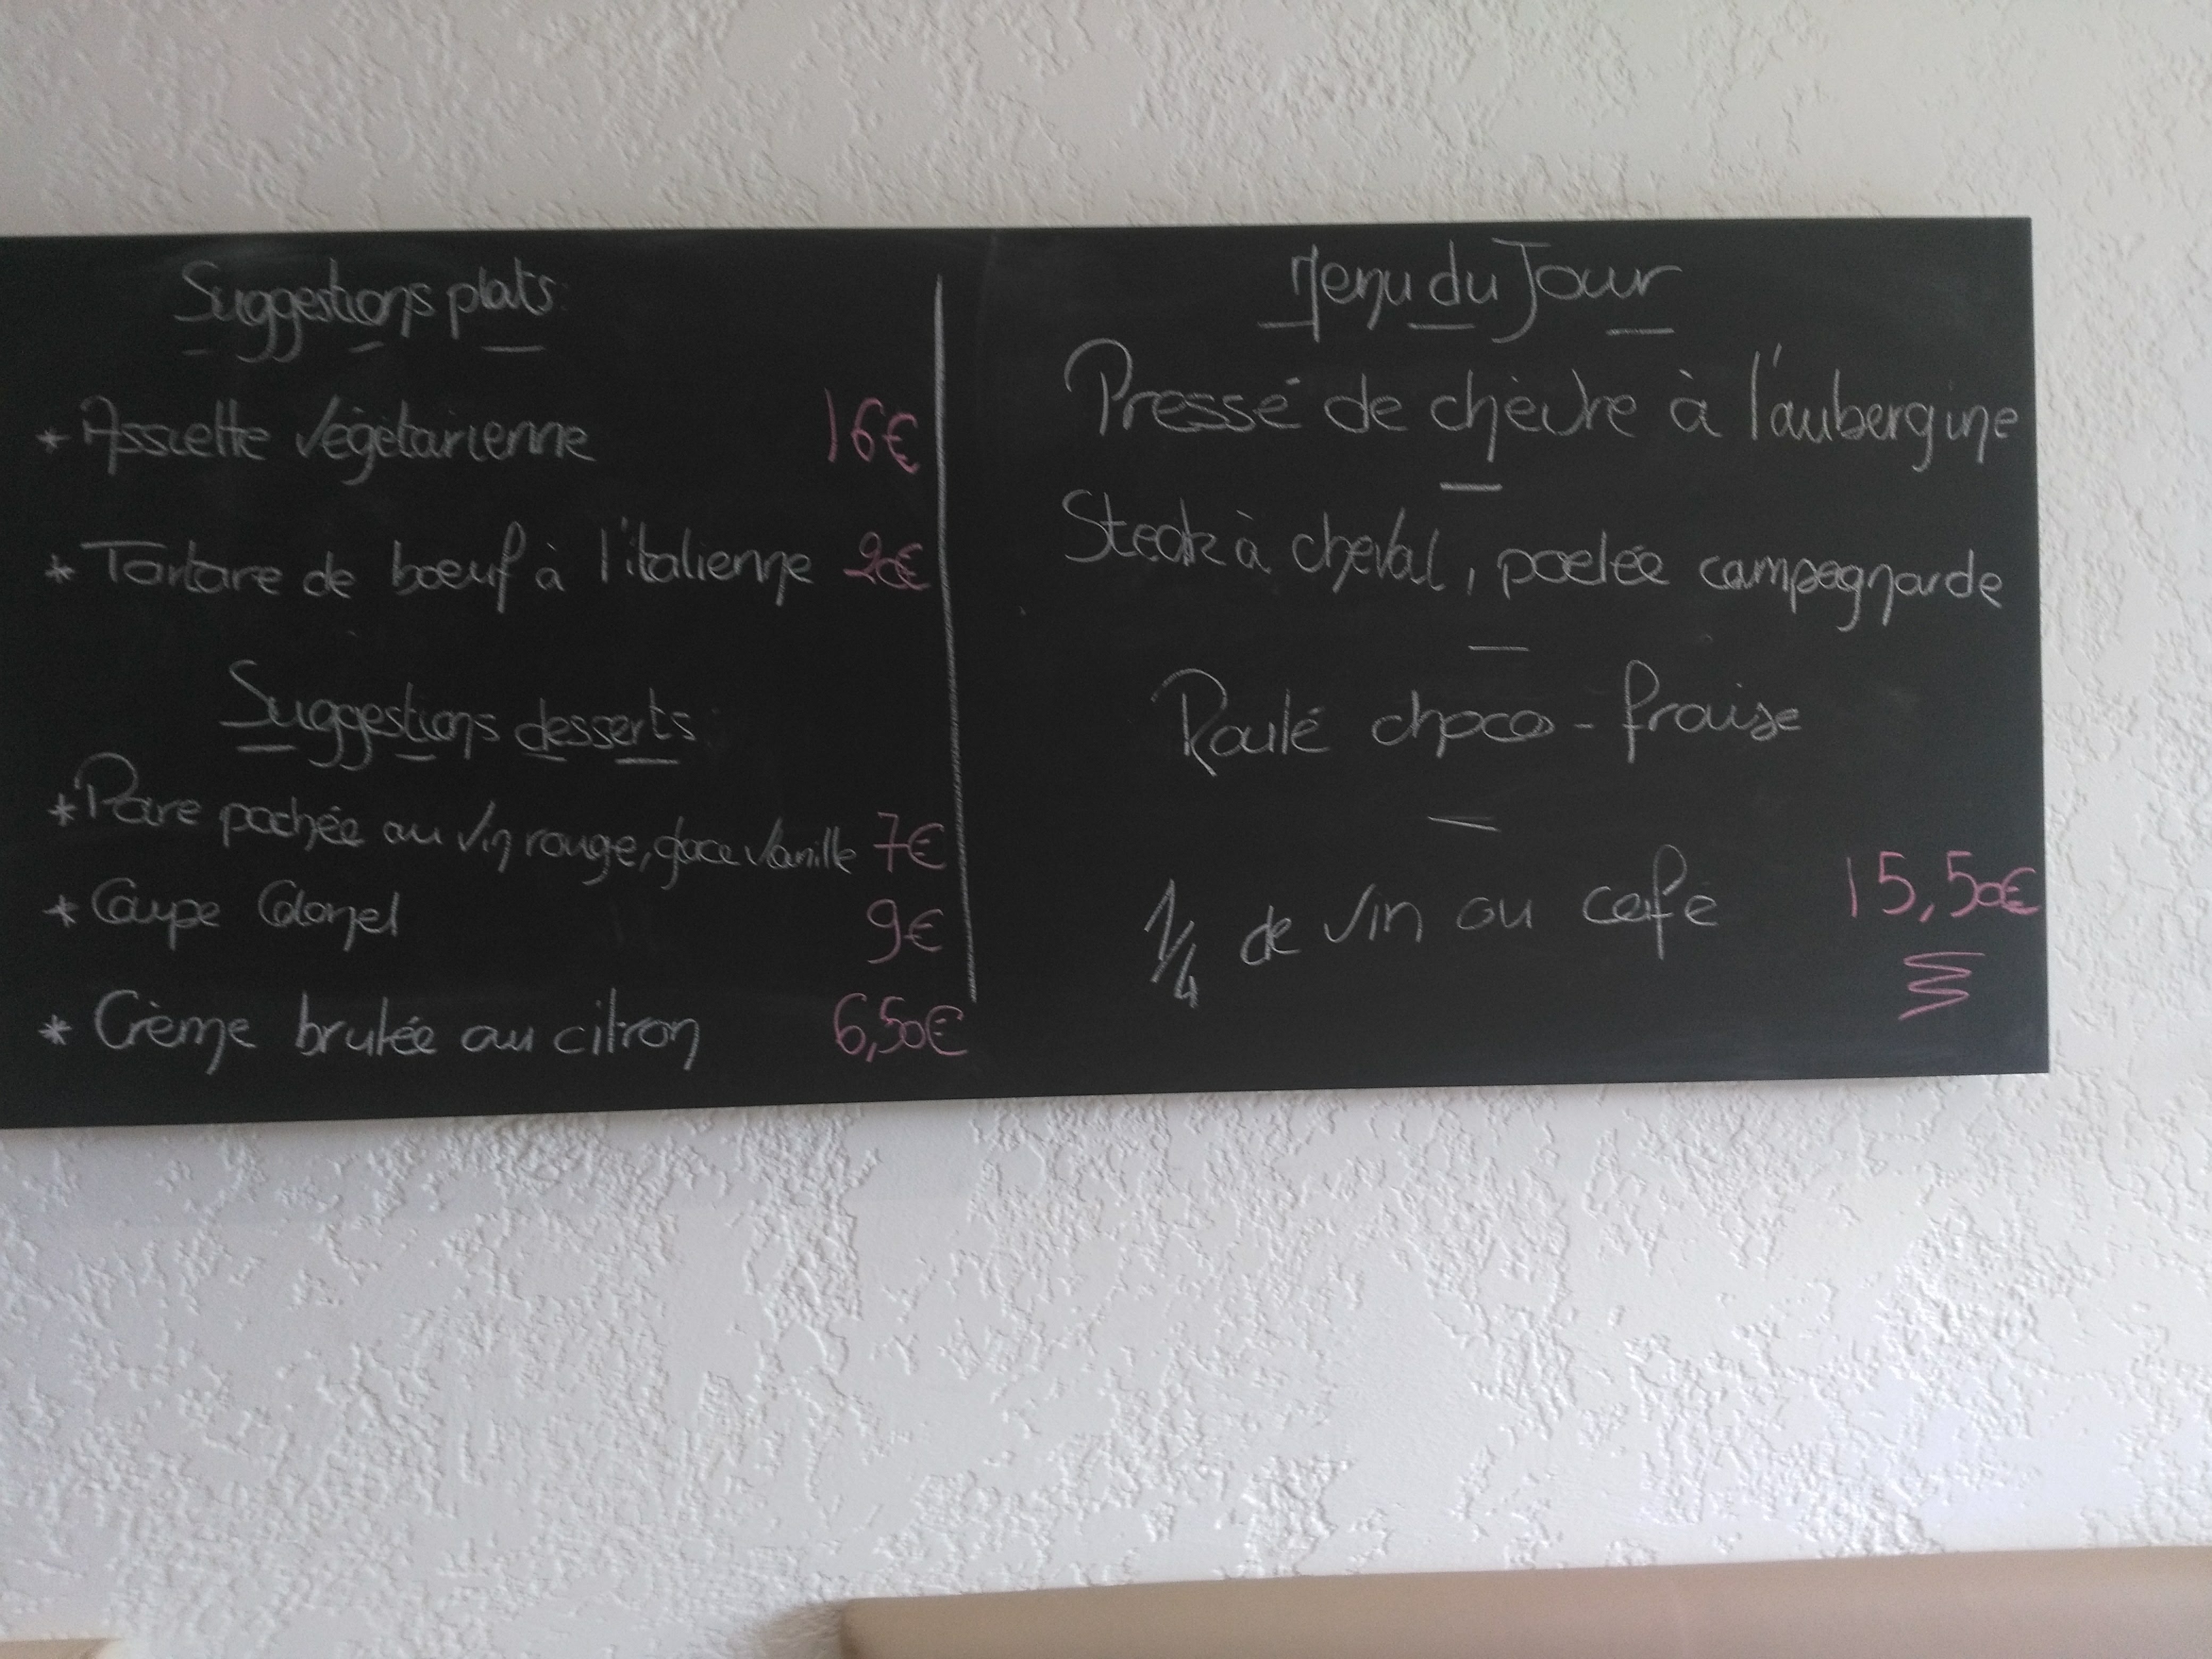 Suggestions plats:
* Assiette végétarienne 16€
* Tartare de bœuf à l'italienne 20€
Suggestions desserts:
* Poire pochée au vin rouge, glace vanille 7€
* Coupe Colonel 9€
* Crème brulée au citron 6,50€
Menu du Jour
Pressé de chèvre à l'aubergine
Steak à cheval, poelée campagnarde
Roulé choco-fraise
1/4 de vin ou café 15,50€